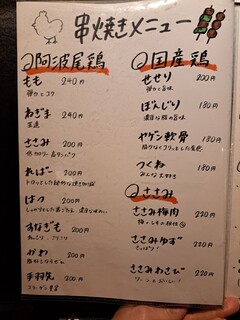 串焼きメニュー
阿波尾鶏
もも 240円
弾力とコク
ねぎま 240円
王道
ささみ 200円
ればー 200円
はつ 200円
すなぎも 200円
かわ 200円
手羽先 200円
コラーゲン豊富
国産鶏
せせり 200円
弾力と旨味
ぼんじり 180円
ヤゲン軟骨 180円
つくね 180円
みんな大好き
ささみ
ささみ梅肉 220円
ささみゆず 220円
さっぱり!
ささみわさび 220円